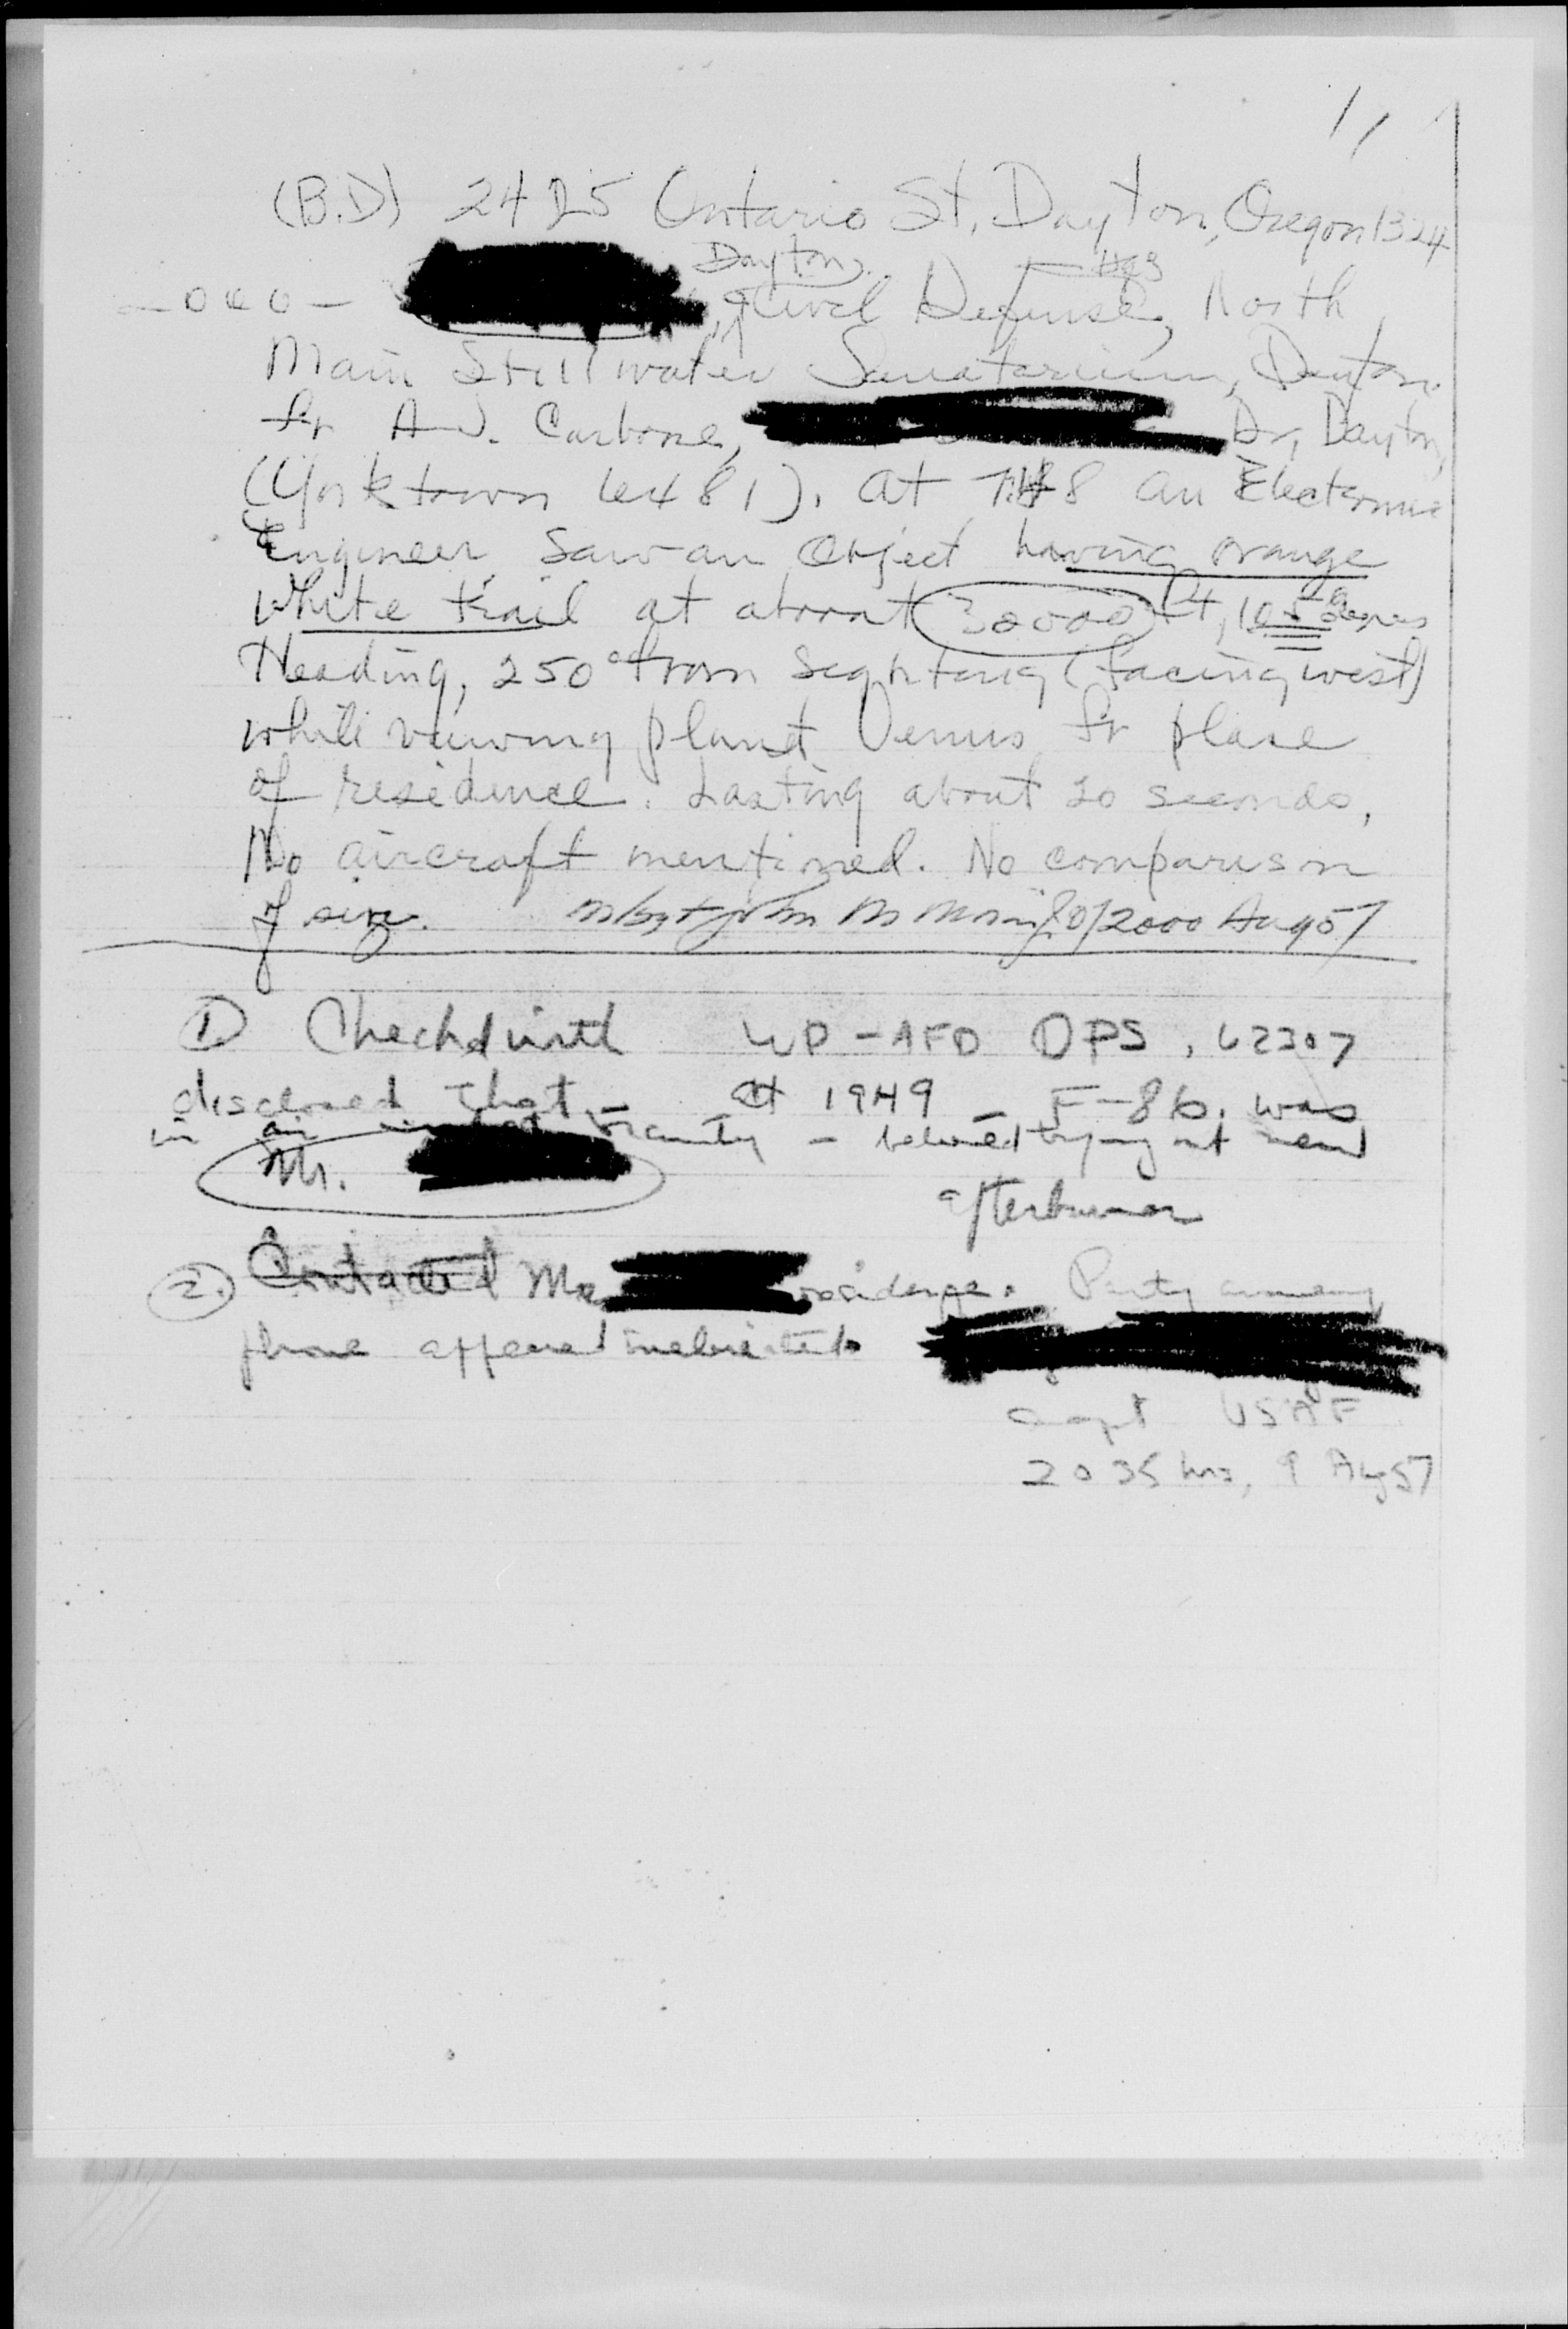 (B.D) 2425 Ontario St, Dayton, Oregon 1324
Dayton Hqs
Civil Defense, North
Main Stillwater Sanatarium, Dayton.
fr A.J. Carbone, Dr, Dayton,
(Yorktown 6481). At an Electronic
Engineer saw an object having orange
white trail at about 30000 ft,
Heading, 250° from sighting (facing west)
while viewing planet Venus fr place
of residence. Lasting about 20 seconds,
No aircraft mentioned. No comparison
of size. M/Sgt John M 2000 Aug 57
① Checked with WP-AFB OPS, 62307
disclosed that at 1949 - F-86, was
in air vicinity - believed trying out new
Mr. afterburner
②. Contacted residence. Party
phone appeared inebriated.
Capt USAF
2035 hrs, 9 Aug 57